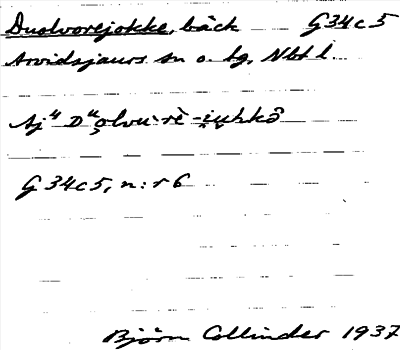 Duolvorejokke, bäck G34c5
Arvidsjaurs sn o. lg, Nbt l.
Aj⁴ Dᵘo̭lvu·rè -i̭ŭhkô
G34c5, n:r 6
Björn Collinder 1937